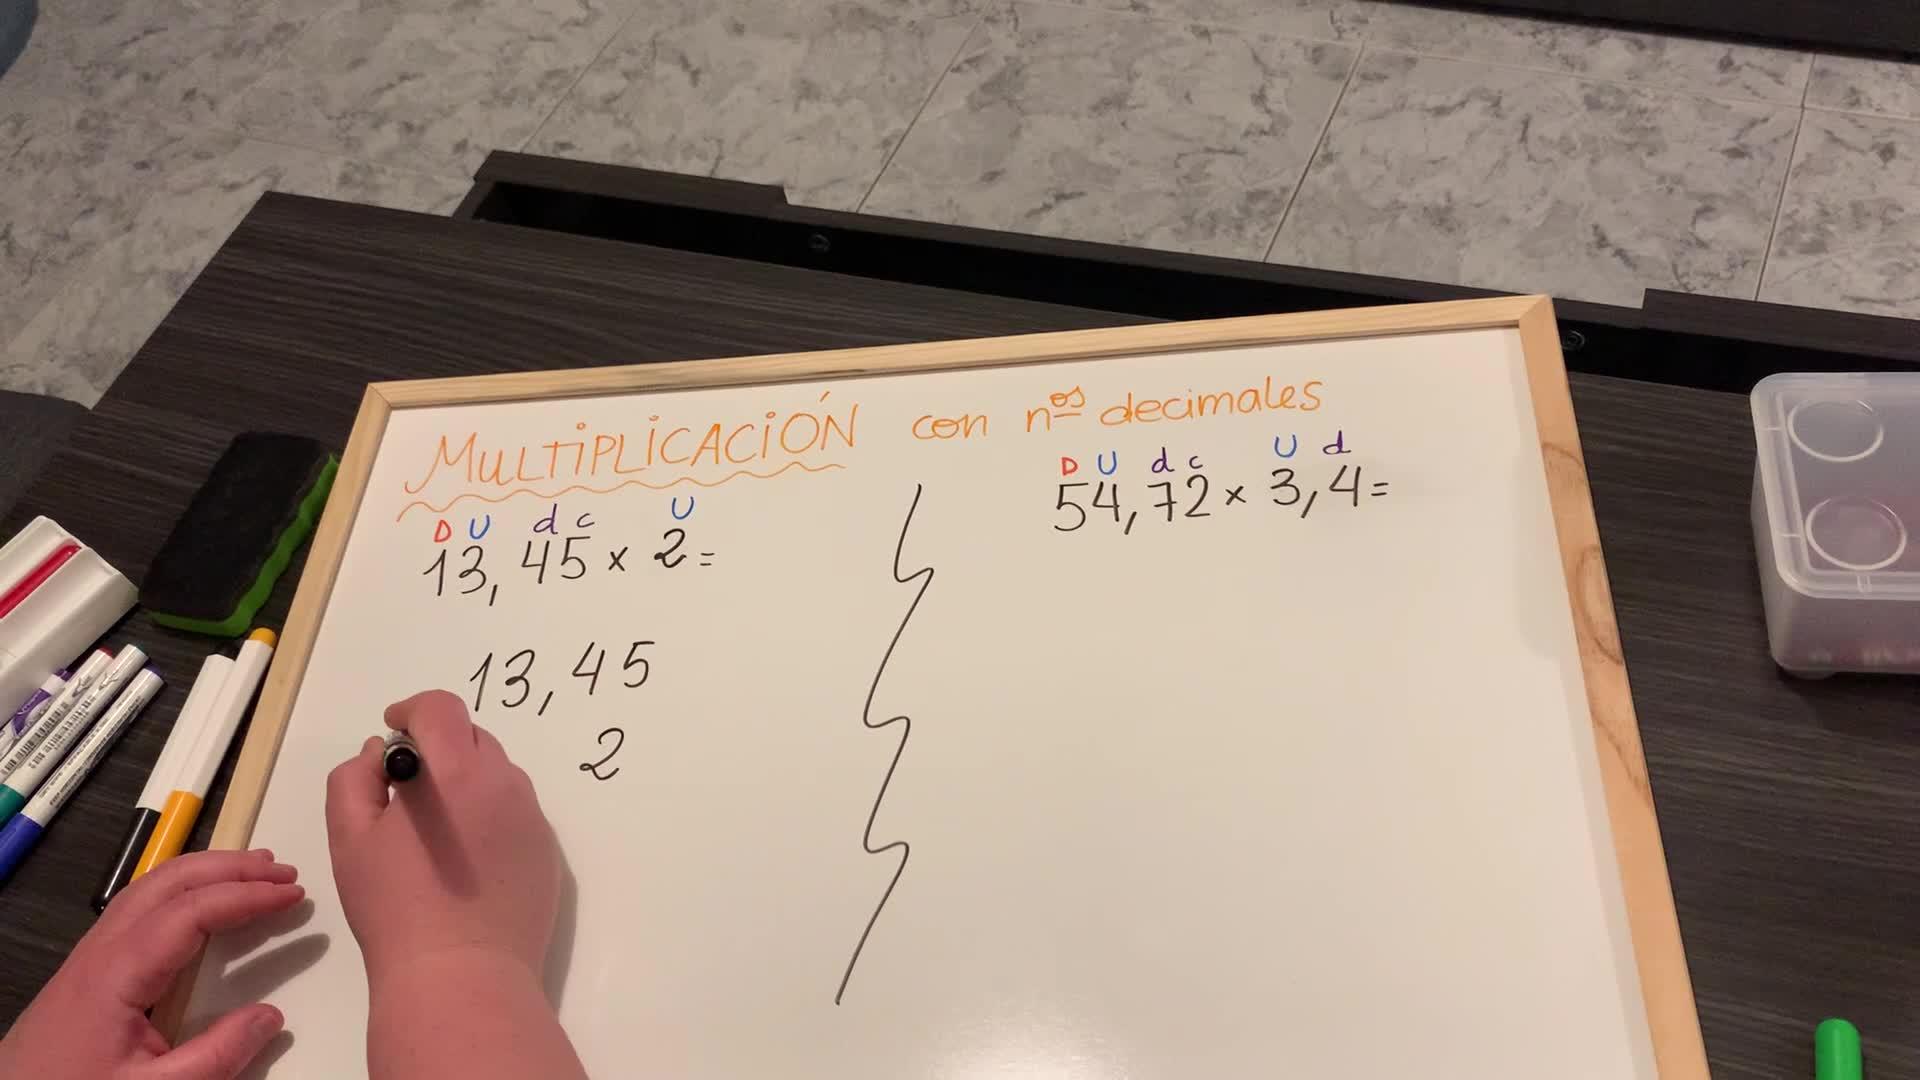 MULTIPLICACIÓN con nºs decimales
D U d c U
13,45 x 2 =
13,45
2
D U d c U d
54,72 x 3,4 =